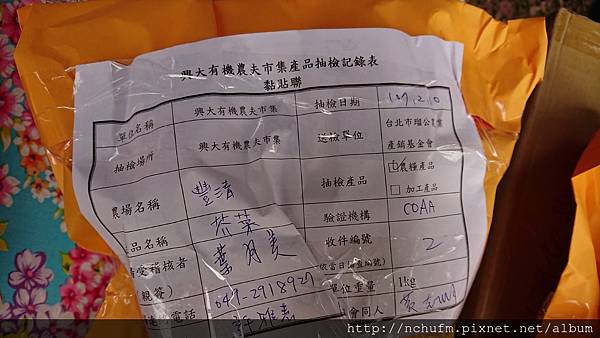 興大有機農夫市集產品抽檢記錄表
黏貼聯
單位名稱 興大有機農夫市集 抽檢日期 107.12.0
抽檢場所 興大有機農夫市集 送檢單位 台北市瑠公農業
產銷基金會
農場名稱 豐清 抽檢產品 ☑農糧產品
□ 加工產品
品名稱 芥菜 驗證機構 COAA
受稽核者 葉月美 收件編號 2
親簽) (依當日抽檢編號)
電話 047-2918927 單位重量 1kg
許雅嘉 會同人
http://nchufm.pixnet.net/album